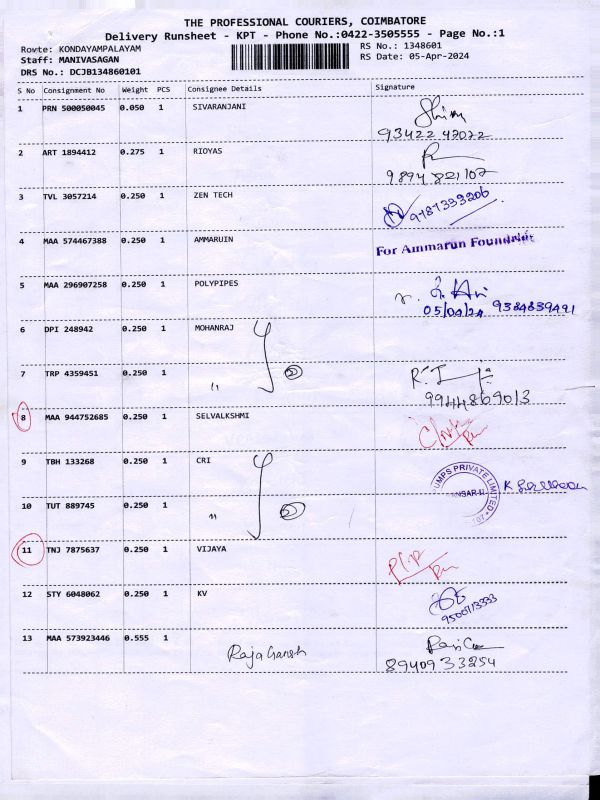 THE PROFESSIONAL COURIERS, COIMBATORE
Delivery Runsheet - KPT - Phone No.:0422-3505555 - Page No.:1
Rovte: KONDAYAMPALAYAM
RS No.: 1348601
Staff: MANIVASAGAN
RS Date: 05-Apr-2024
DRS No.: DCJB134860101
S No Consignment No Weight PCS Consignee Details Signature
1 PRN 500050045 0.050 1 SIVARANJANI
93422 47072
2 ART 1894412 0.275 1 RIOYAS
9894 821102
3 TVL 3057214 0.250 1 ZEN TECH
9787333206
4 MAA 574467388 0.250 1 AMMARUIN For Ammarun Foundation
5 MAA 296907258 0.250 1 POLYPIPES
05/04/24 9384839491
6 DPI 248942 0.250 1 MOHANRAJ
7 TRP 4359451 0.250 1 "
9944869013
8 MAA 944752685 0.250 1 SELVALKSHMI
9 TBH 133268 0.250 1 CRI
UMPS PRIVATE LIMITED
10 TUT 889745 0.250 1 "
11 TNJ 7875637 0.250 1 VIJAYA
12 STY 6048062 0.250 1 KV
9500713333
13 MAA 573923446 0.555 1 RajaGanesh
8940933254